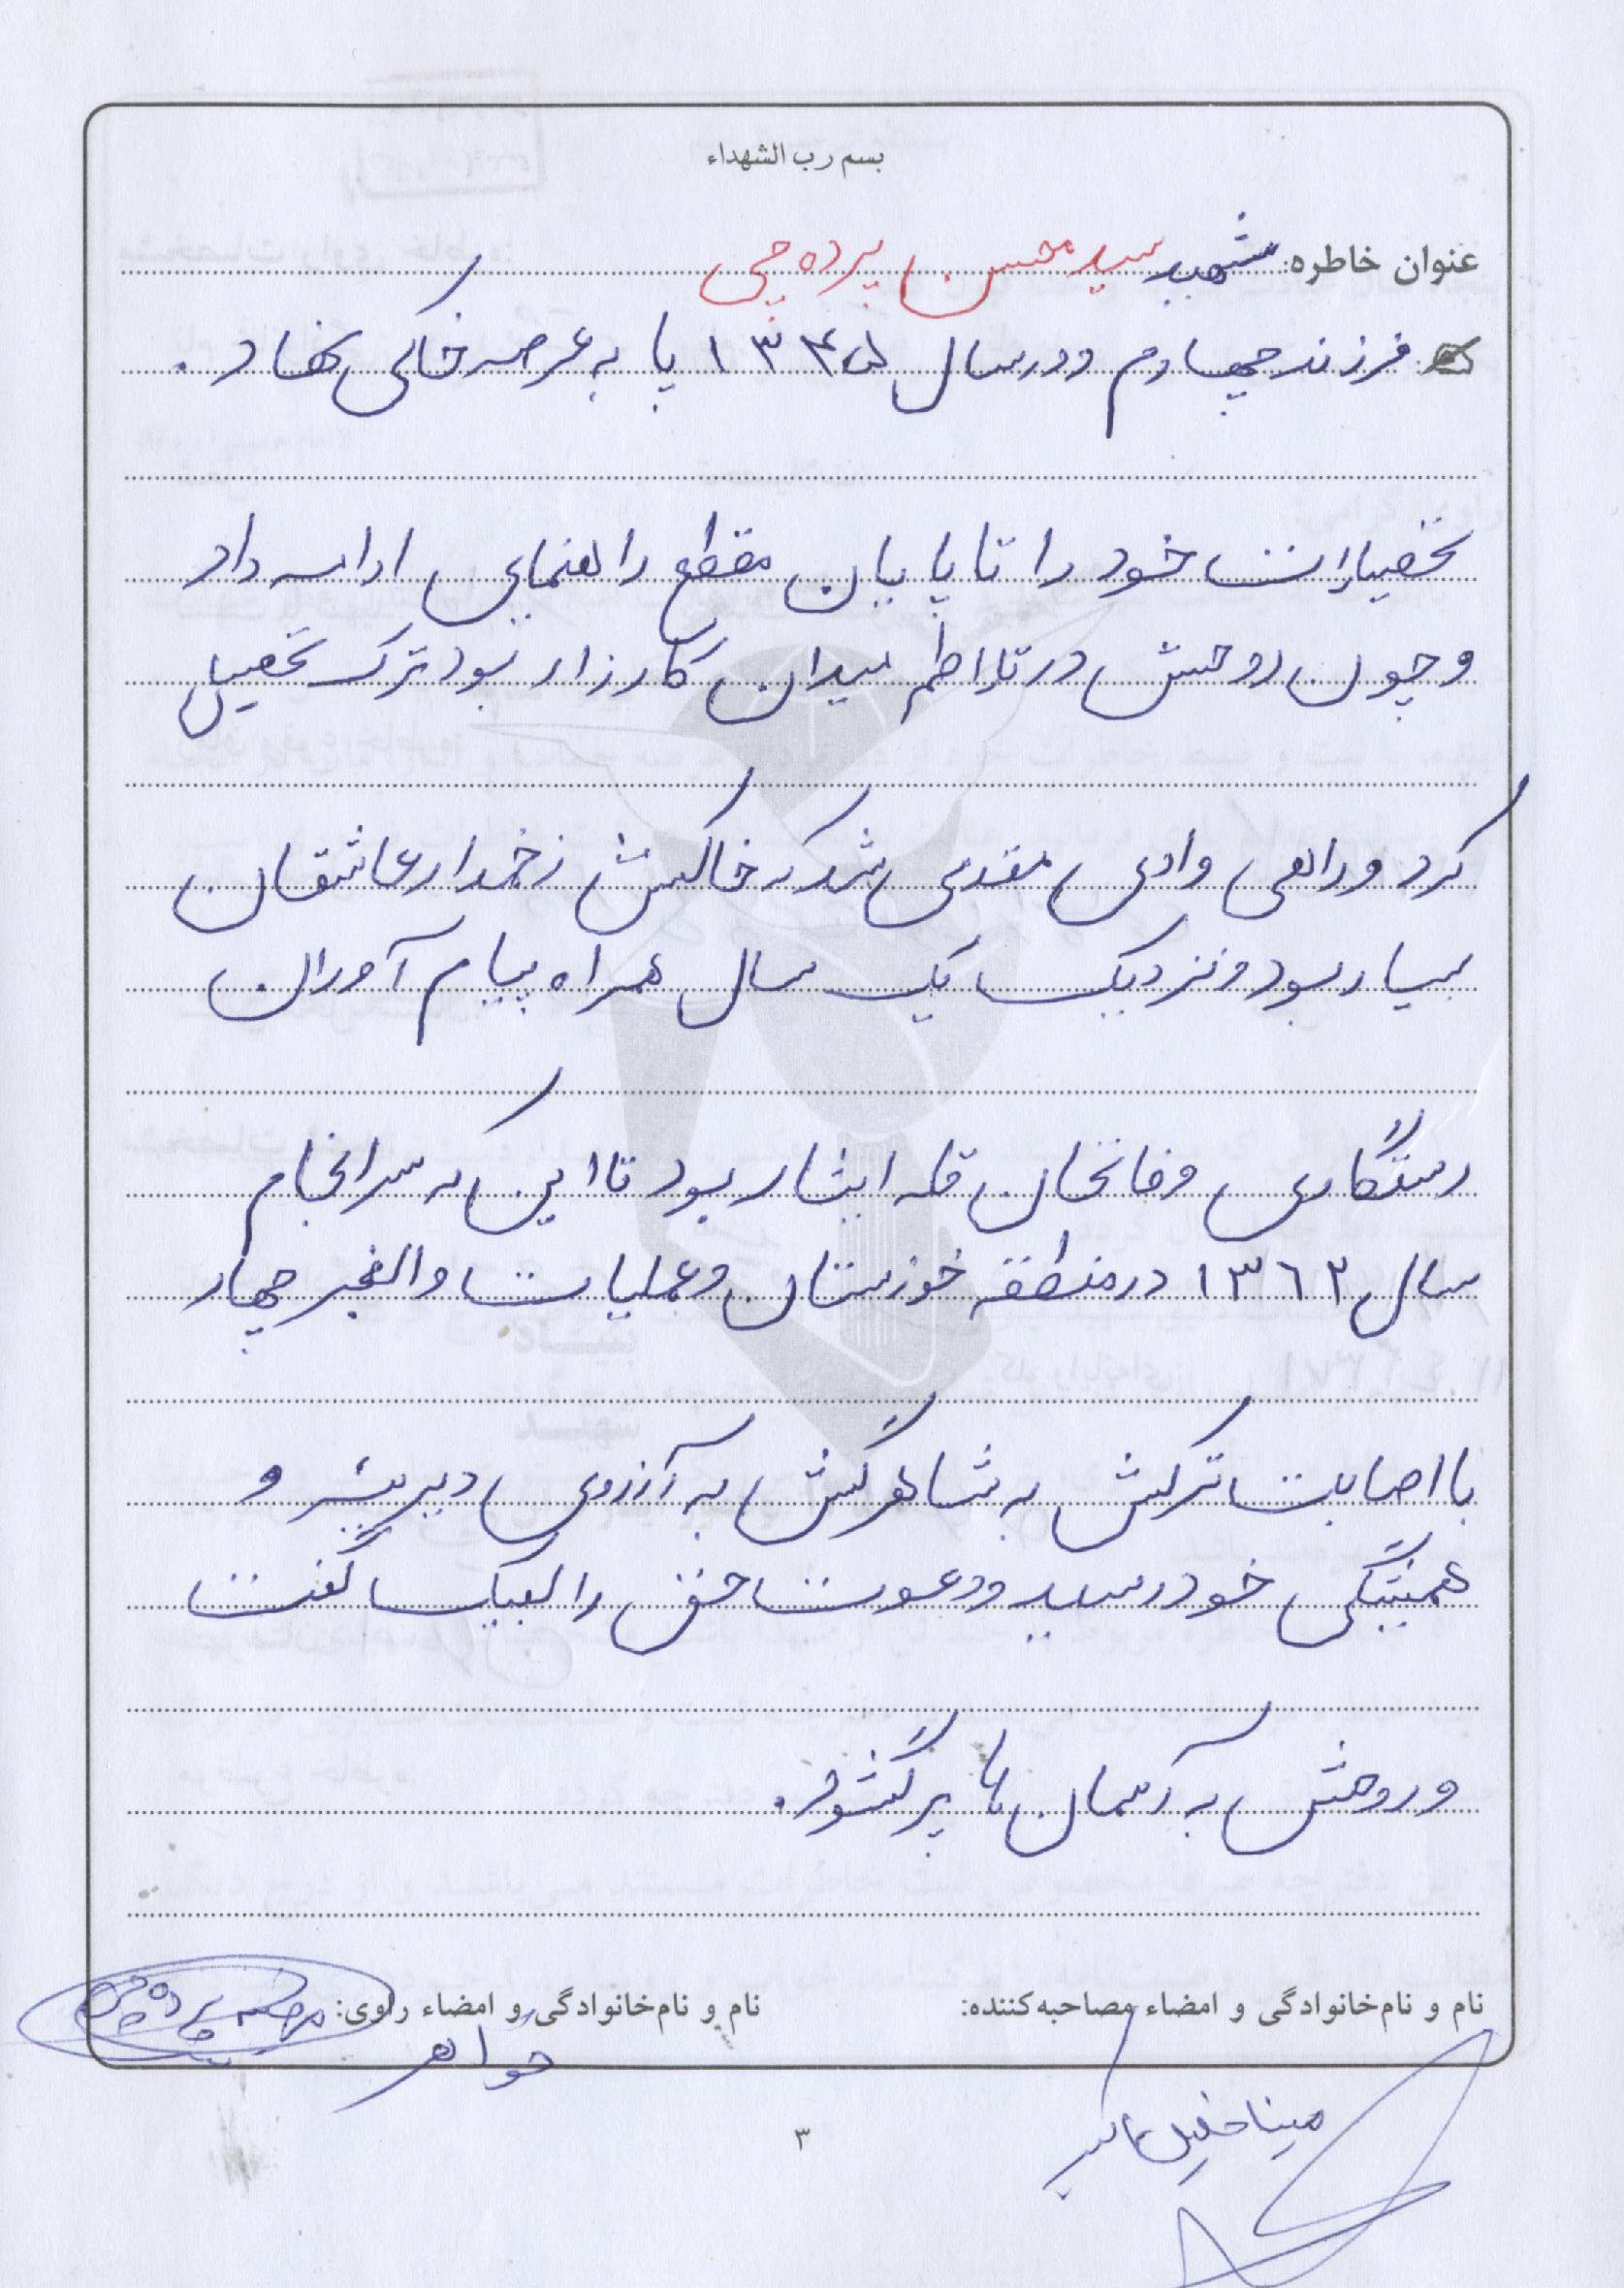 بسم رب الشهداء
عنوان خاطره: شهید سید محسن پرده چی
فرزند چهارم و در سال ۱۳۴۵ پا به عرصه خاکی نهاد.
تحصیلات خود را تا پایان مقطع راهنمایی ادامه داد
و چون روحش در تلاطم میدان کارزار بود ترک تحصیل
کرد و راهی وادی مقدسی شد که خاکش زخمدار عاشقان
بسیار بود و نزدیک یک سال همراه پیام آوران
رستگاری و فاتحان قله ایثار بود تا این که سرانجام
سال ۱۳٦۲ در منطقه خوزستان و عملیات والفجر چهار
با اصابت ترکش به شاهرگش به آرزوی دیرینه و
همیشگی خود رسید و دعوت حق را لبیک گفت
و روحش به آسمان ها پر گشود.
نام و نام‌خانوادگی و امضاء مصاحبه‌کننده:
نام و نام‌خانوادگی و امضاء راوی: مرضیه پرده چی
خواهر
مینا
۳